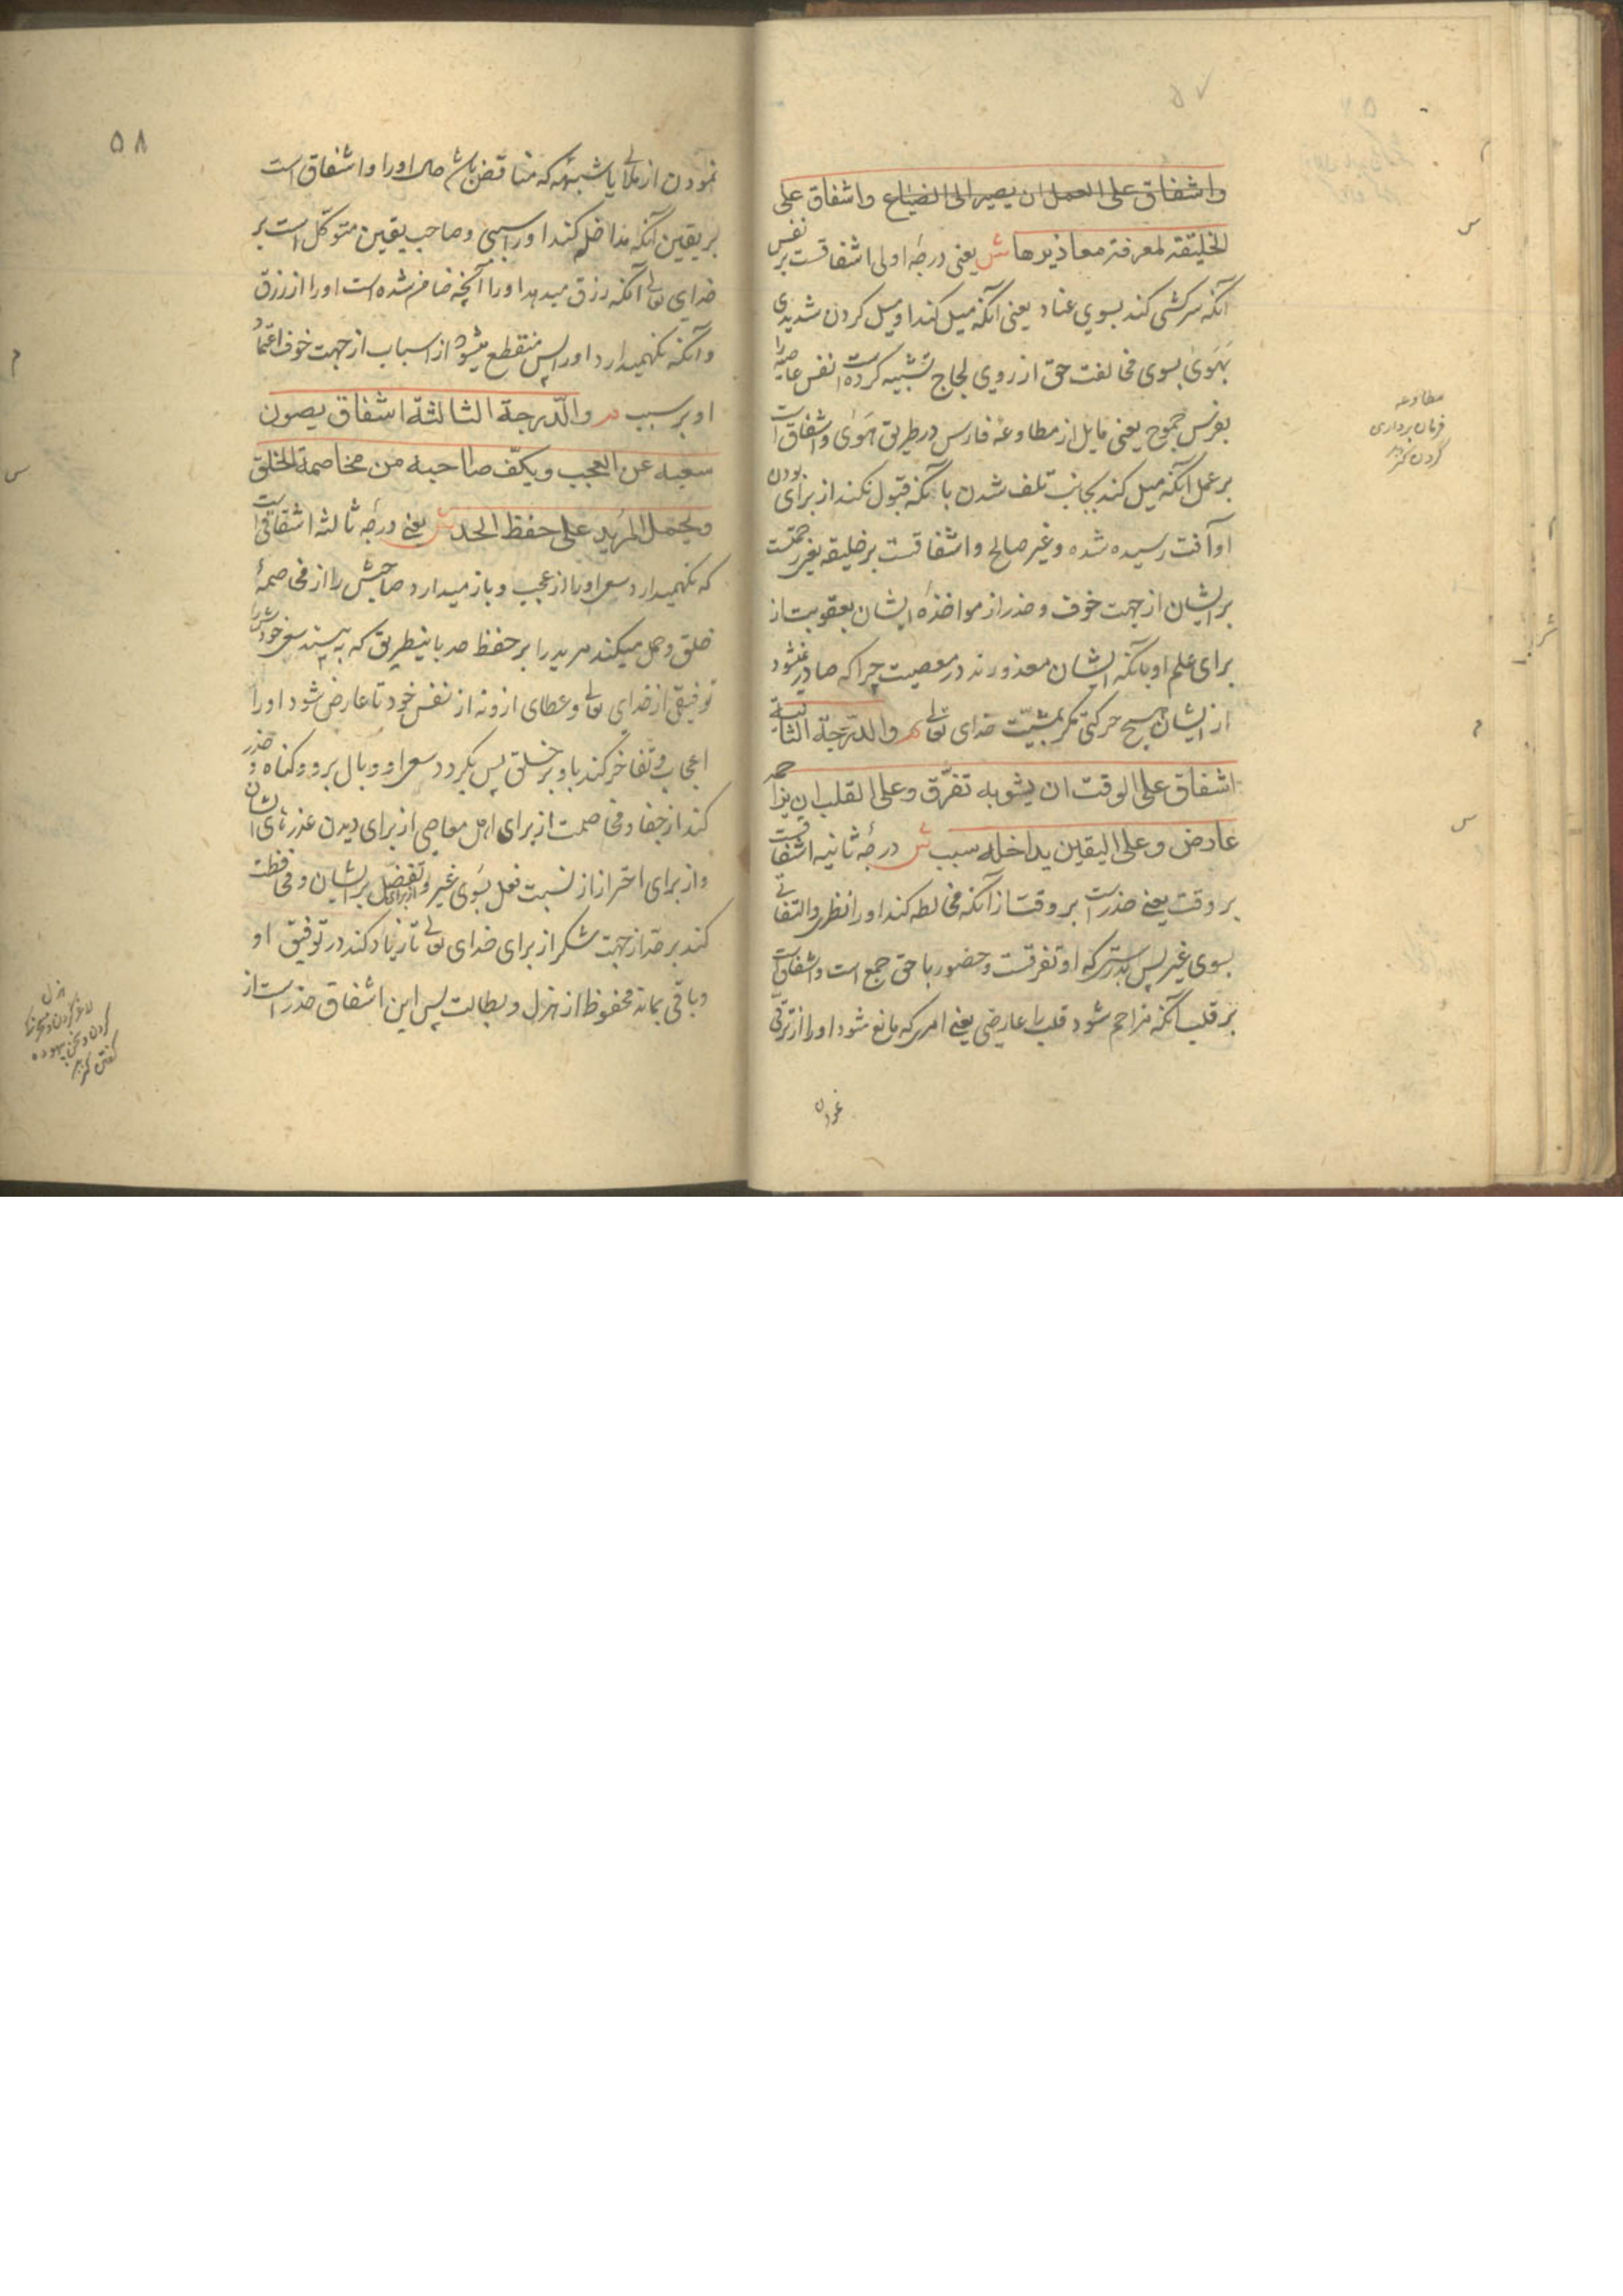 ۵۷
واشفاق علی العمل ان یصیر الی الضیاع واشفاق علی
الخلیقة لمعرفة معاذیرها ش یعنی درجهٔ اولی اشفاقست بر نفس
آنکه سرکشی کند بسوی عناد یعنی آنکه میل کند او میل کردن شدیدی
بهوی بسوی مخالفت حق از روی لجاج تشبیه کرده است نفس عاصیه را
بفرس جموح یعنی مایل از مطاوعهٔ فارس در طریق هوی واشفاق است
بر عمل آنکه میل کند بجانب تلف شدن بآنکه قبول نکند از برای بودن
او آفت رسیده شده و غیر صالح واشفاقست بر خلیقه یعنی رحمتست
بر ایشان از جهت خوف و حذر از مواخذهٔ ایشان بعقوبت از
برای علم او بآنکه ایشان معذورند در معصیت چرا که صادر نمیشود
از ایشان هیچ حرکتی مگر بمشیّت خدای تعالی م والدّرجة الثانیة
اشفاق علی الوقت ان یشوبه تفرّق وعلی القلب ان یزاحمه
عارض وعلی الیقین یداخله سبب ش درجهٔ ثانیه اشفاقست
بر وقت یعنی حذر است بر وقت از آنکه مخالطه کند او را نظر والتفاتی
بسوی غیر پس بدرستی که او تفرقست وحضور باحق جمع است واشفاق است
بر قلب آنکه مزاحم شود قلب را عارضی یعنی امری که مانع شود او را از ترقی
نمودن
مطاوعه
فرمان برداری
س
م
س
۵۸
نمودن از ملالی یا شبههٔ که مناقض باشد حال او را واشفاق است
بر یقین آنکه مداخله کند او را سببی وصاحب یقین متوکّل است بر
خدای تعالی آنکه رزق میدهد او را آنچه ضامن شده است او را از رزق
وآنکه نگهمیدارد او را پس منقطع میشود از اسباب از جهت خوف اعتماد
او بر سبب م والدّرجة الثالثة اشفاق یصون
سعیه عن العجب ویکفّ صاحبه من مخاصمة الخلق
ویحمل المرید علی حفظ الحد ش یعنی درجهٔ ثالثه اشفاقی است
که نگهمیدارد سعی او را از عجب وباز میدارد صاحبش را از مخاصمهٔ
خلق وحمل میکند مرید را بر حفظ حد باینطریق که به بیند سعی خودش را
توفیقی از خدای تعالی وعطای از و نه از نفس خود تا عارض شود او را
اعجاب وتفاخر کند باو بر خلق پس بگردد سعی او وبال برو وگناه وحذر
کند از جفا ومخاصمت از برای اهل معاصی از برای دیدن عذرهای ایشان
واز برای احتراز از نسبت فعل بسوی غیر او واز برای تفضّل بر ایشان ومحافظت
کند بر حد از جهت شکر از برای خدای تعالی تا زیاد کند در توفیق او
وباقی بماند محفوظ از هزل وبطالت پس این اشفاق حذر است از
م
س
هزل